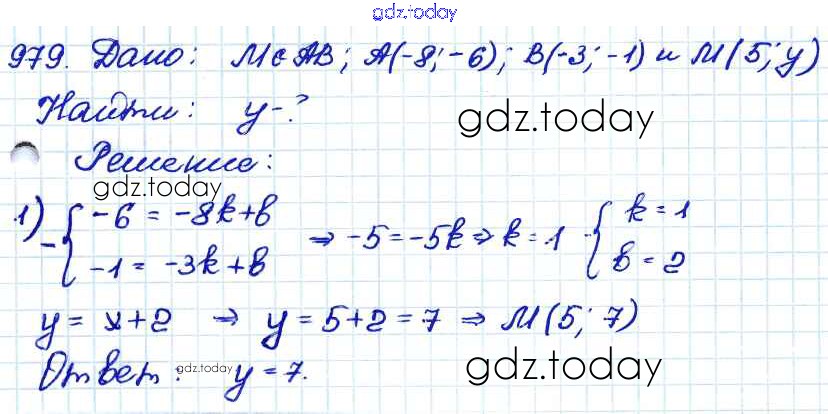 gdz.today
979. Дано: M ∈ AB; A(-8; -6); B(-3; -1) и M(5; y)
Найти: y - ?
gdz.today
Решение:
gdz.today
1) - { -6 = -8k + b
-1 = -3k + b ⇒ -5 = -5k ⇒ k = 1 { k = 1
b = 2
y = x + 2 ⇒ y = 5 + 2 = 7 ⇒ M(5; 7)
Ответ: gdz.today y = 7. gdz.today